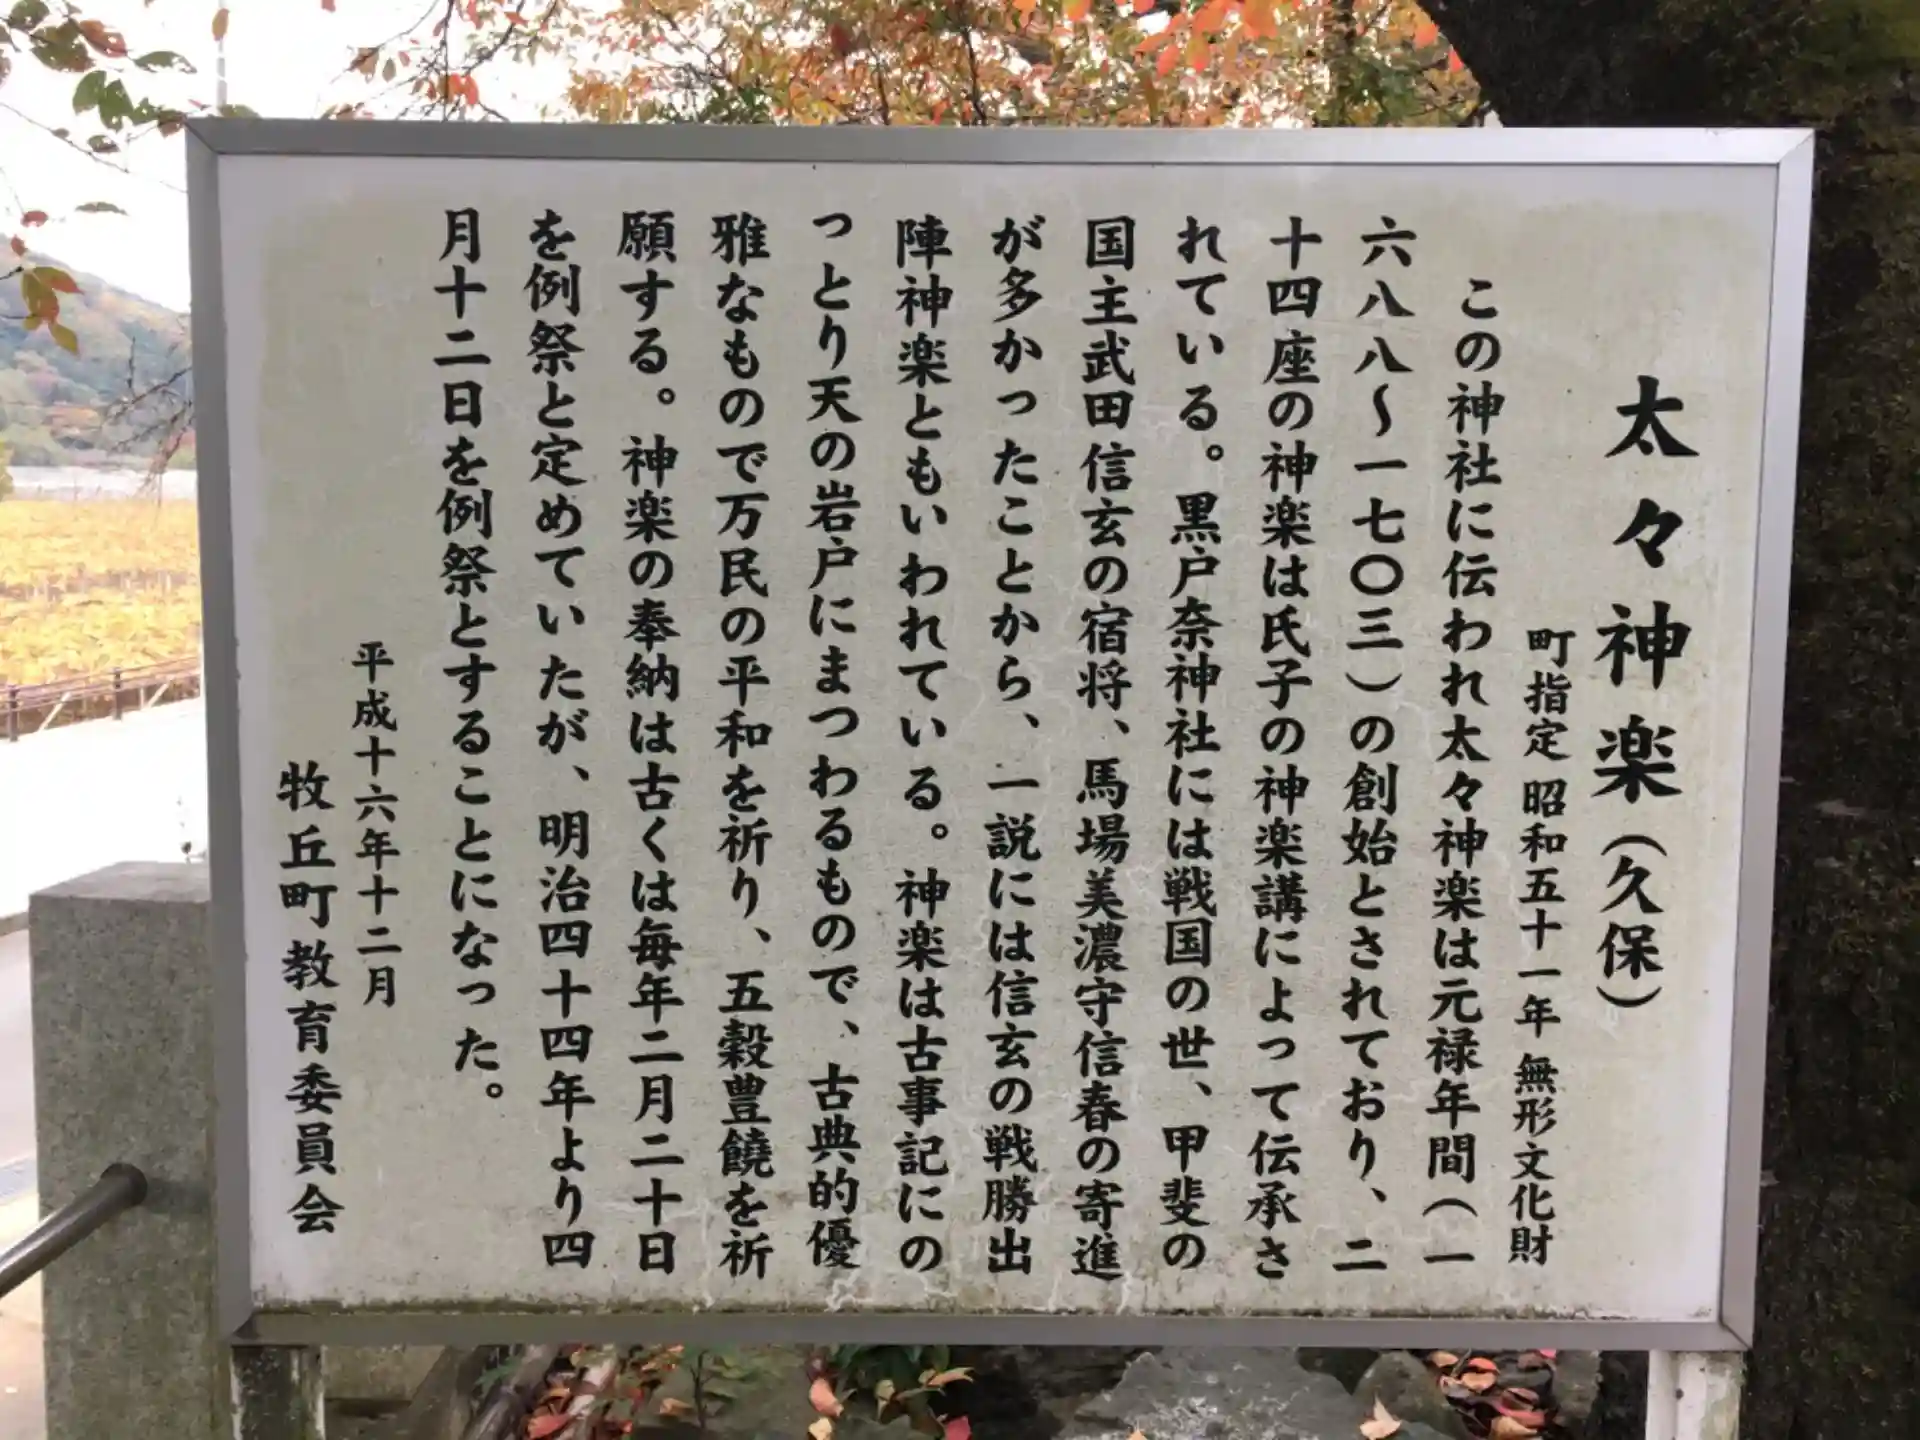 太々神楽（久保）
町指定 昭和五十一年 無形文化財
この神社に伝われ太々神楽は元禄年間（一
六八八～一七〇三）の創始とされており、二
十四座の神楽は氏子の神楽講によって伝承さ
れている。黒戸奈神社には戦国の世、甲斐の
国主武田信玄の宿将、馬場美濃守信春の寄進
が多かったことから、一説には信玄の戦勝出
陣神楽ともいわれている。神楽は古事記にの
っとり天の岩戸にまつわるもので、古典的優
雅なもので万民の平和を祈り、五穀豊饒を祈
願する。神楽の奉納は古くは毎年二月二十日
を例祭と定めていたが、明治四十四年より四
月十二日を例祭とすることになった。
平成十六年十二月
牧丘町教育委員会